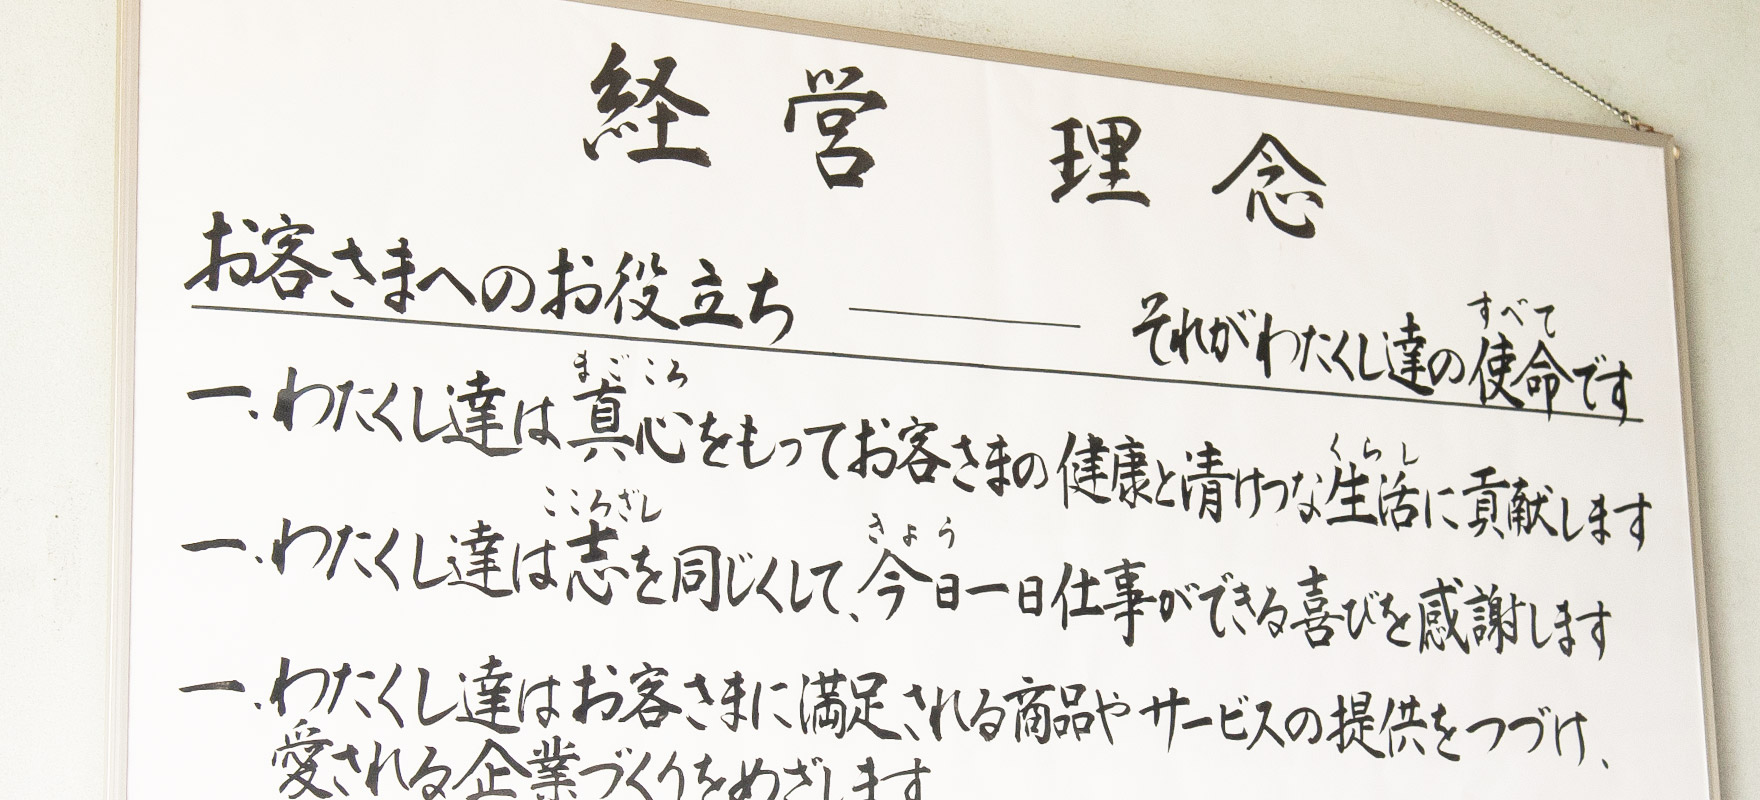 経営 理念
お客さまへのお役立ち —— それがわたくし達の使命です
すべて
一、わたくし達は真心をもってお客さまの健康と清けつな生活に貢献します
まごころ くらし
一、わたくし達は志を同じくして、今日一日仕事ができる喜びを感謝します
こころざし きょう
一、わたくし達はお客さまに満足される商品やサービスの提供をつづけ、
愛される企業づくりをめざします